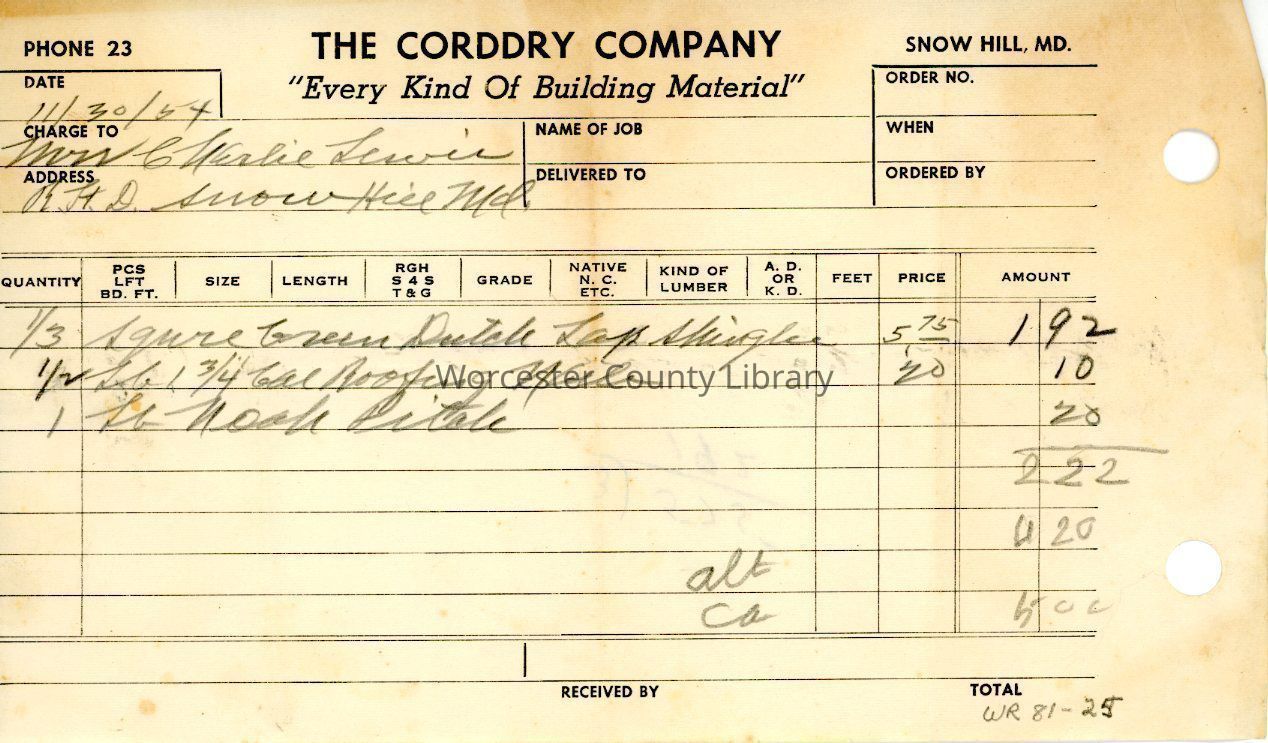 PHONE 23
THE CORDDRY COMPANY
SNOW HILL, MD.
"Every Kind Of Building Material"
DATE
11/30/54
ORDER NO.
CHARGE TO
Charlie Lewis
NAME OF JOB
WHEN
ADDRESS
R.F.D. Snow Hill Md.
DELIVERED TO
ORDERED BY
QUANTITY PCS LFT BD. FT. SIZE LENGTH RGH S4S T&G GRADE NATIVE N. C. ETC. KIND OF LUMBER A. D. OR K. D. FEET PRICE AMOUNT
1/3 Squre Green Dutch Lap Shingles 5 75 1 92
1/2 Lb 1 3/4 Gal Roofing 20 10
1 Lb Pitch 20
2 22
4 20
ca
Worcester County Library
RECEIVED BY
TOTAL
WR 81-25